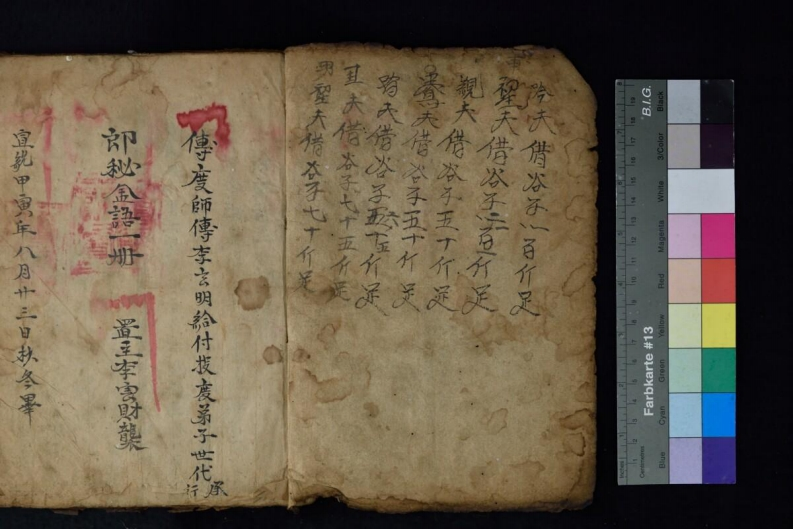 夫借谷子一百斤足
夫借谷子二百斤足
親夫借谷子五十斤足
夫借谷子五十斤足
夫借谷子六十五斤足
夫借谷子七十五斤足
夫借谷子七十斤足
傳度師傳李玄明給付投度弟子世代承行
即秘金語一册
置主李雲財襲
宣統甲寅年八月廿三日抄冬畢
B.I.G.
Farbkarte #13
Blue
Cyan
Green
Yellow
Red
Magenta
White
3/Color
Black
Inches
Centimetres